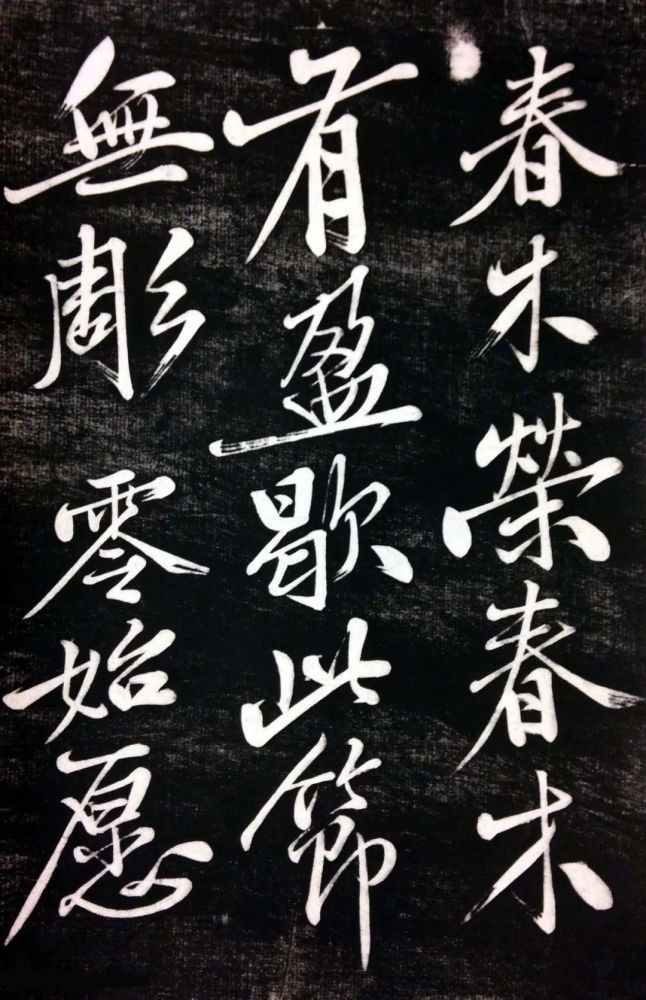 春木榮春木
有盈歇此節
無彫零始愿